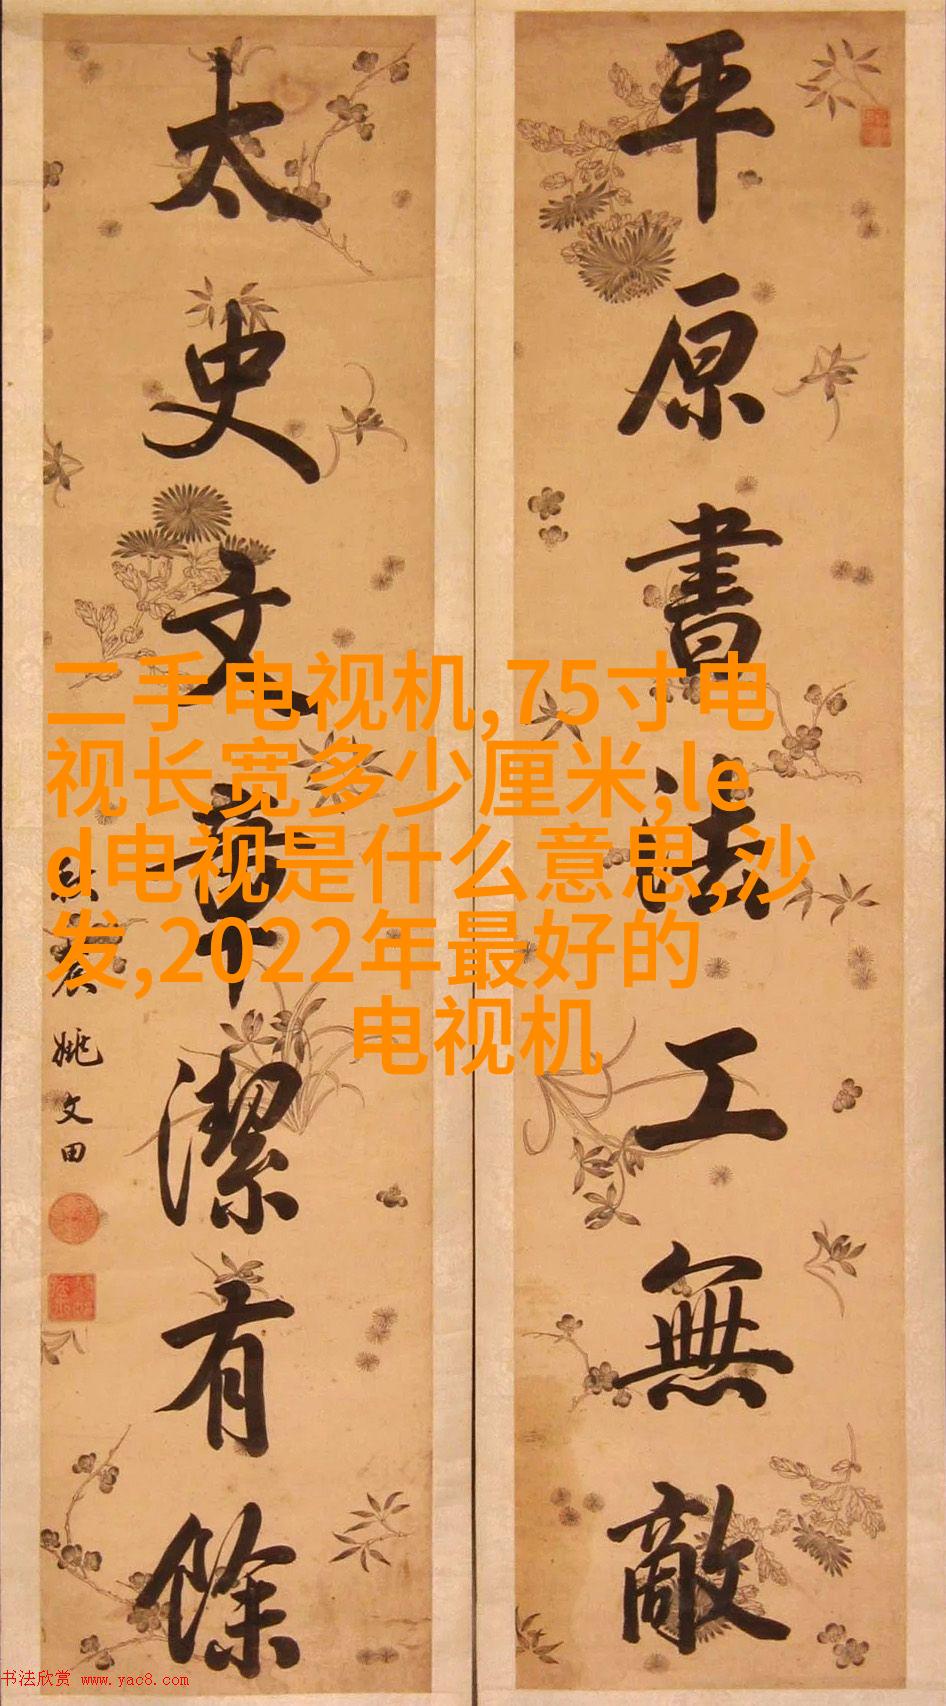 平原書法工無敵
太史文章潔有餘
姚文田
二手电视机,75寸电
视长宽多少厘米,le
d电视是什么意思,沙
发,2022年最好的
电视机
书法欣赏 www.yac8.com